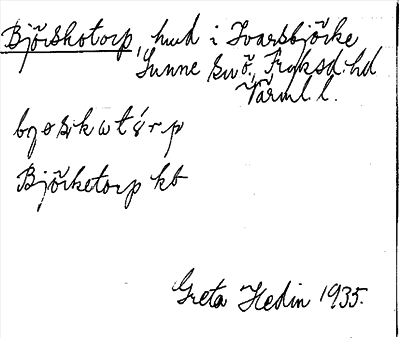 Björskotorp, hmd i Ivarsbjörke
Sunne sn Ö. Fryksd. hd
Värml. l.
Björketorp kb
Greta Hedin 1935.